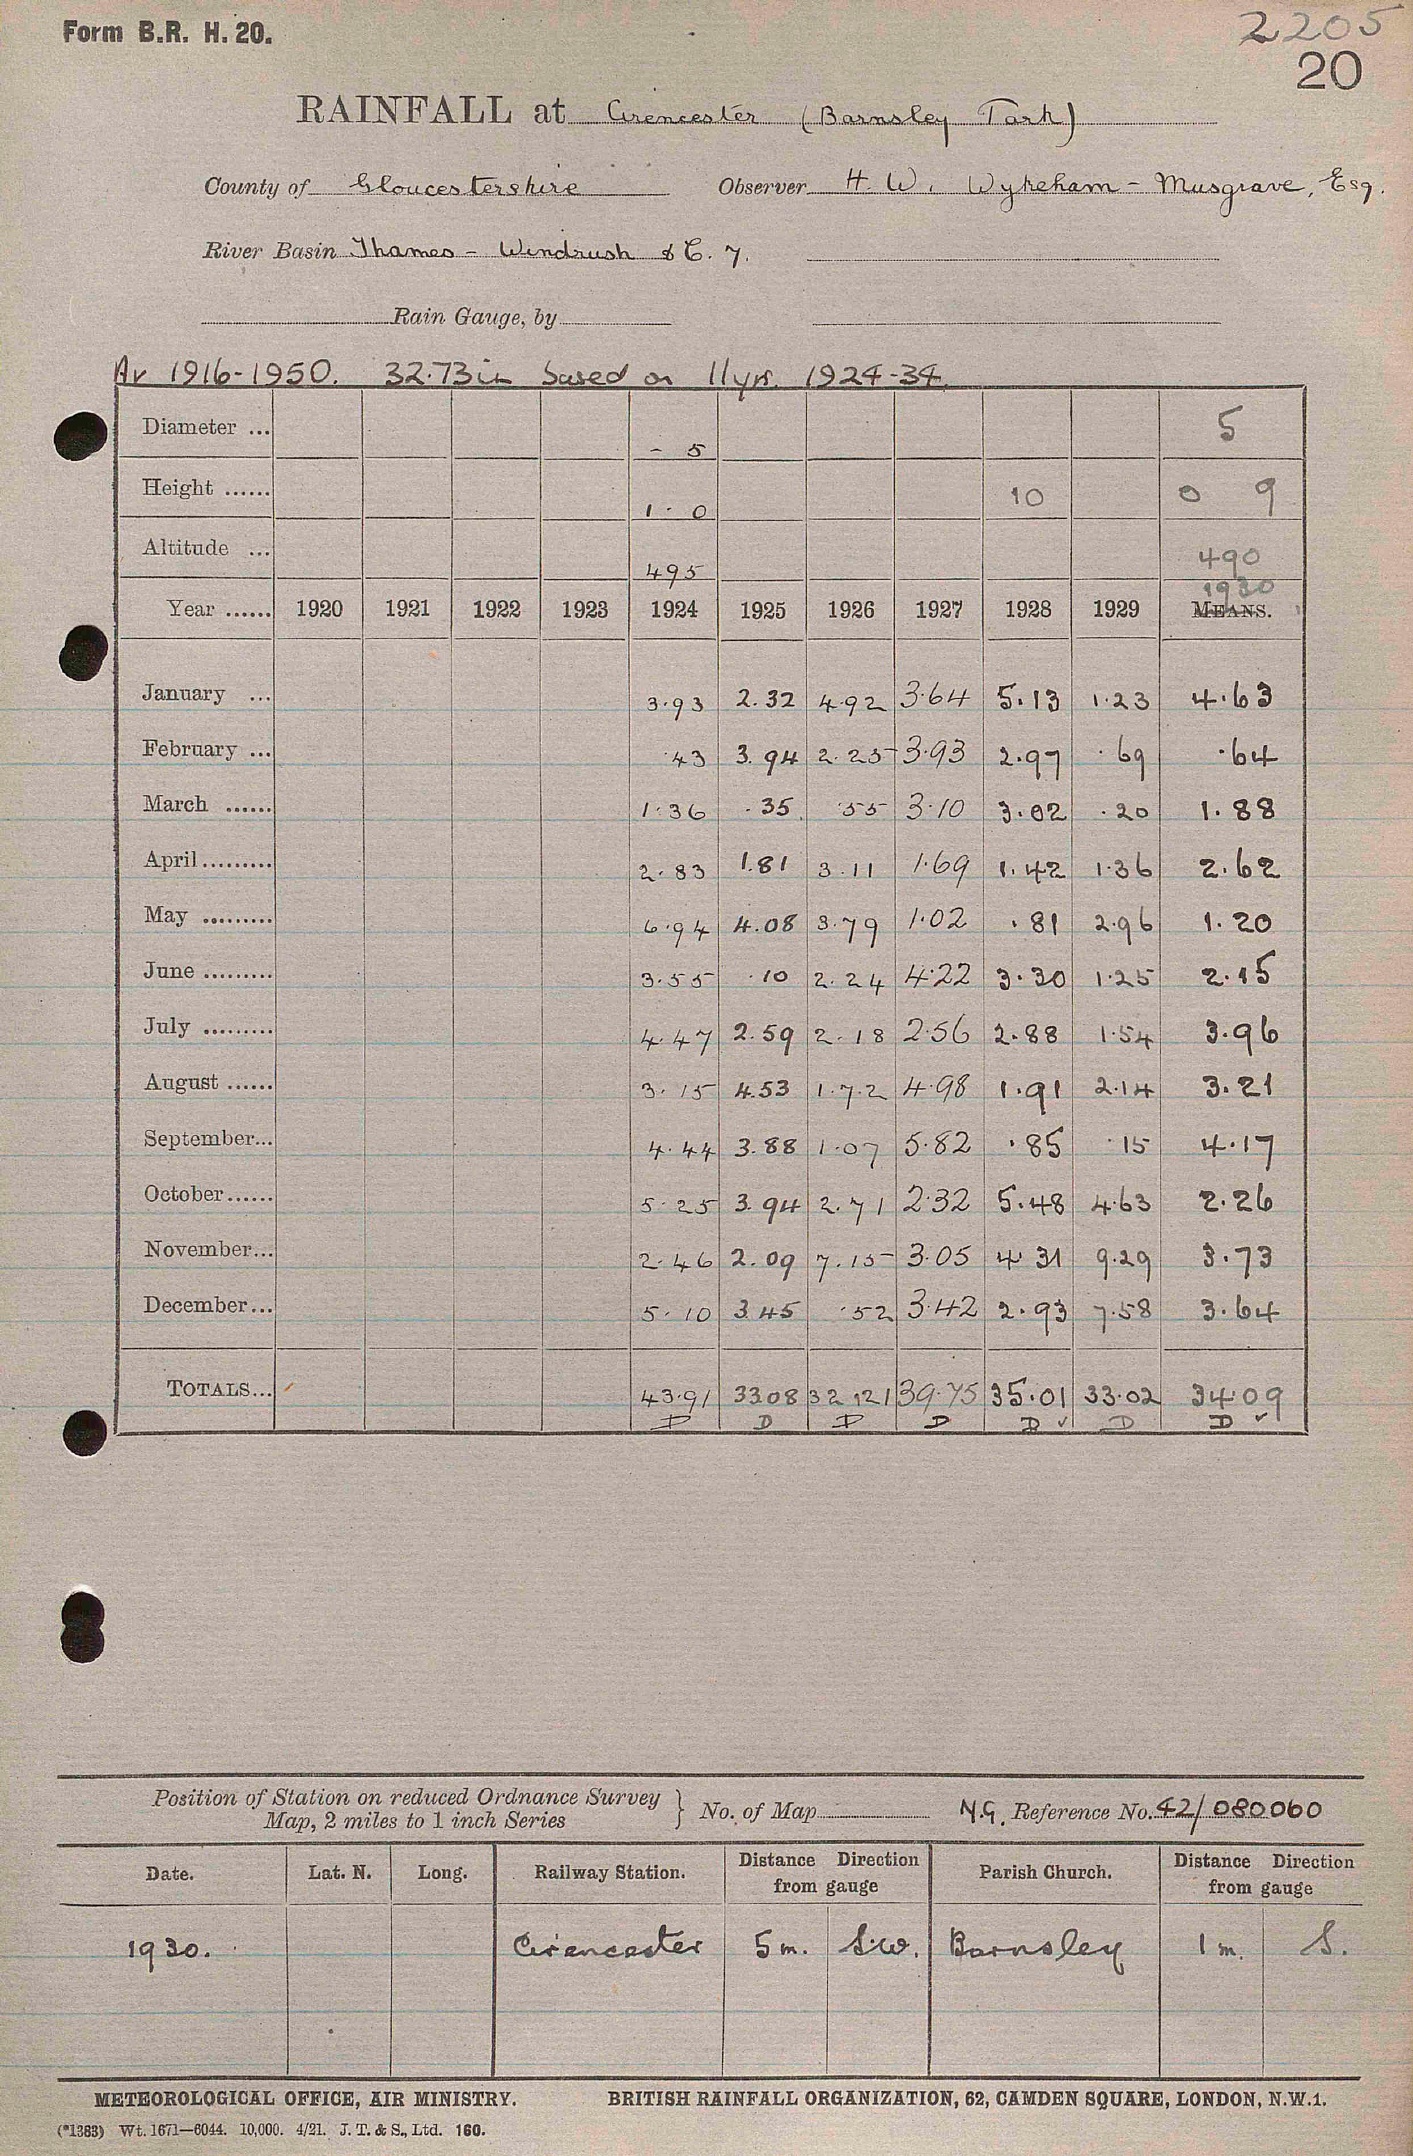 Form B.R. H. 20.
2205
20
RAINFALL at Cirencester (Barnsley Park)
County of Gloucestershire Observer H. W. Wykeham-Musgrave, Esq.
River Basin Thames - Windrush &C. 7.
Rain Gauge, by
Av 1916-1950. 32.73 in based on 11 yrs. 1924-34.
Diameter ... - 5 5
Height ...... 1 - 0 10 0 9
Altitude ... 495 490
1930
Year ...... 1920 1921 1922 1923 1924 1925 1926 1927 1928 1929 MEANS.
January ... 3.93 2.32 4.92 3.64 5.13 1.23 4.63
February ... .43 3.94 2.25 3.93 2.97 .69 .64
March ...... 1.36 .35 .55 3.10 3.02 .20 1.88
April ......... 2.83 1.81 3.11 1.69 1.42 1.36 2.62
May ......... 6.94 4.08 3.79 1.02 .81 2.96 1.20
June ......... 3.55 .10 2.24 4.22 3.30 1.25 2.15
July ......... 4.47 2.59 2.18 2.56 2.88 1.54 3.96
August ...... 3.15 4.53 1.72 4.98 1.91 2.14 3.21
September... 4.44 3.88 1.07 5.82 .85 .15 4.17
October...... 5.25 3.94 2.71 2.32 5.48 4.63 2.26
November... 2.46 2.09 7.15 3.05 4 31 9.29 3.73
December... 5.10 3.45 .52 3.42 2.93 7.58 3.64
TOTALS... 43.91 33.08 32.21 39.75 35.01 33.02 34.09
D D D D D ✓ D D ✓
Position of Station on reduced Ordnance Survey
Map, 2 miles to 1 inch Series } No. of Map N.G. Reference No. 42/080060
Date. Lat. N. Long. Railway Station. Distance Direction from gauge Parish Church. Distance Direction from gauge
1930. Cirencester 5 m. S.W. Barnsley 1 m. S.
METEOROLOGICAL OFFICE, AIR MINISTRY. BRITISH RAINFALL ORGANIZATION, 62, CAMDEN SQUARE, LONDON, N.W.1.
(*1383) Wt. 1671—6044. 10,000. 4/21. J. T. & S., Ltd. 160.